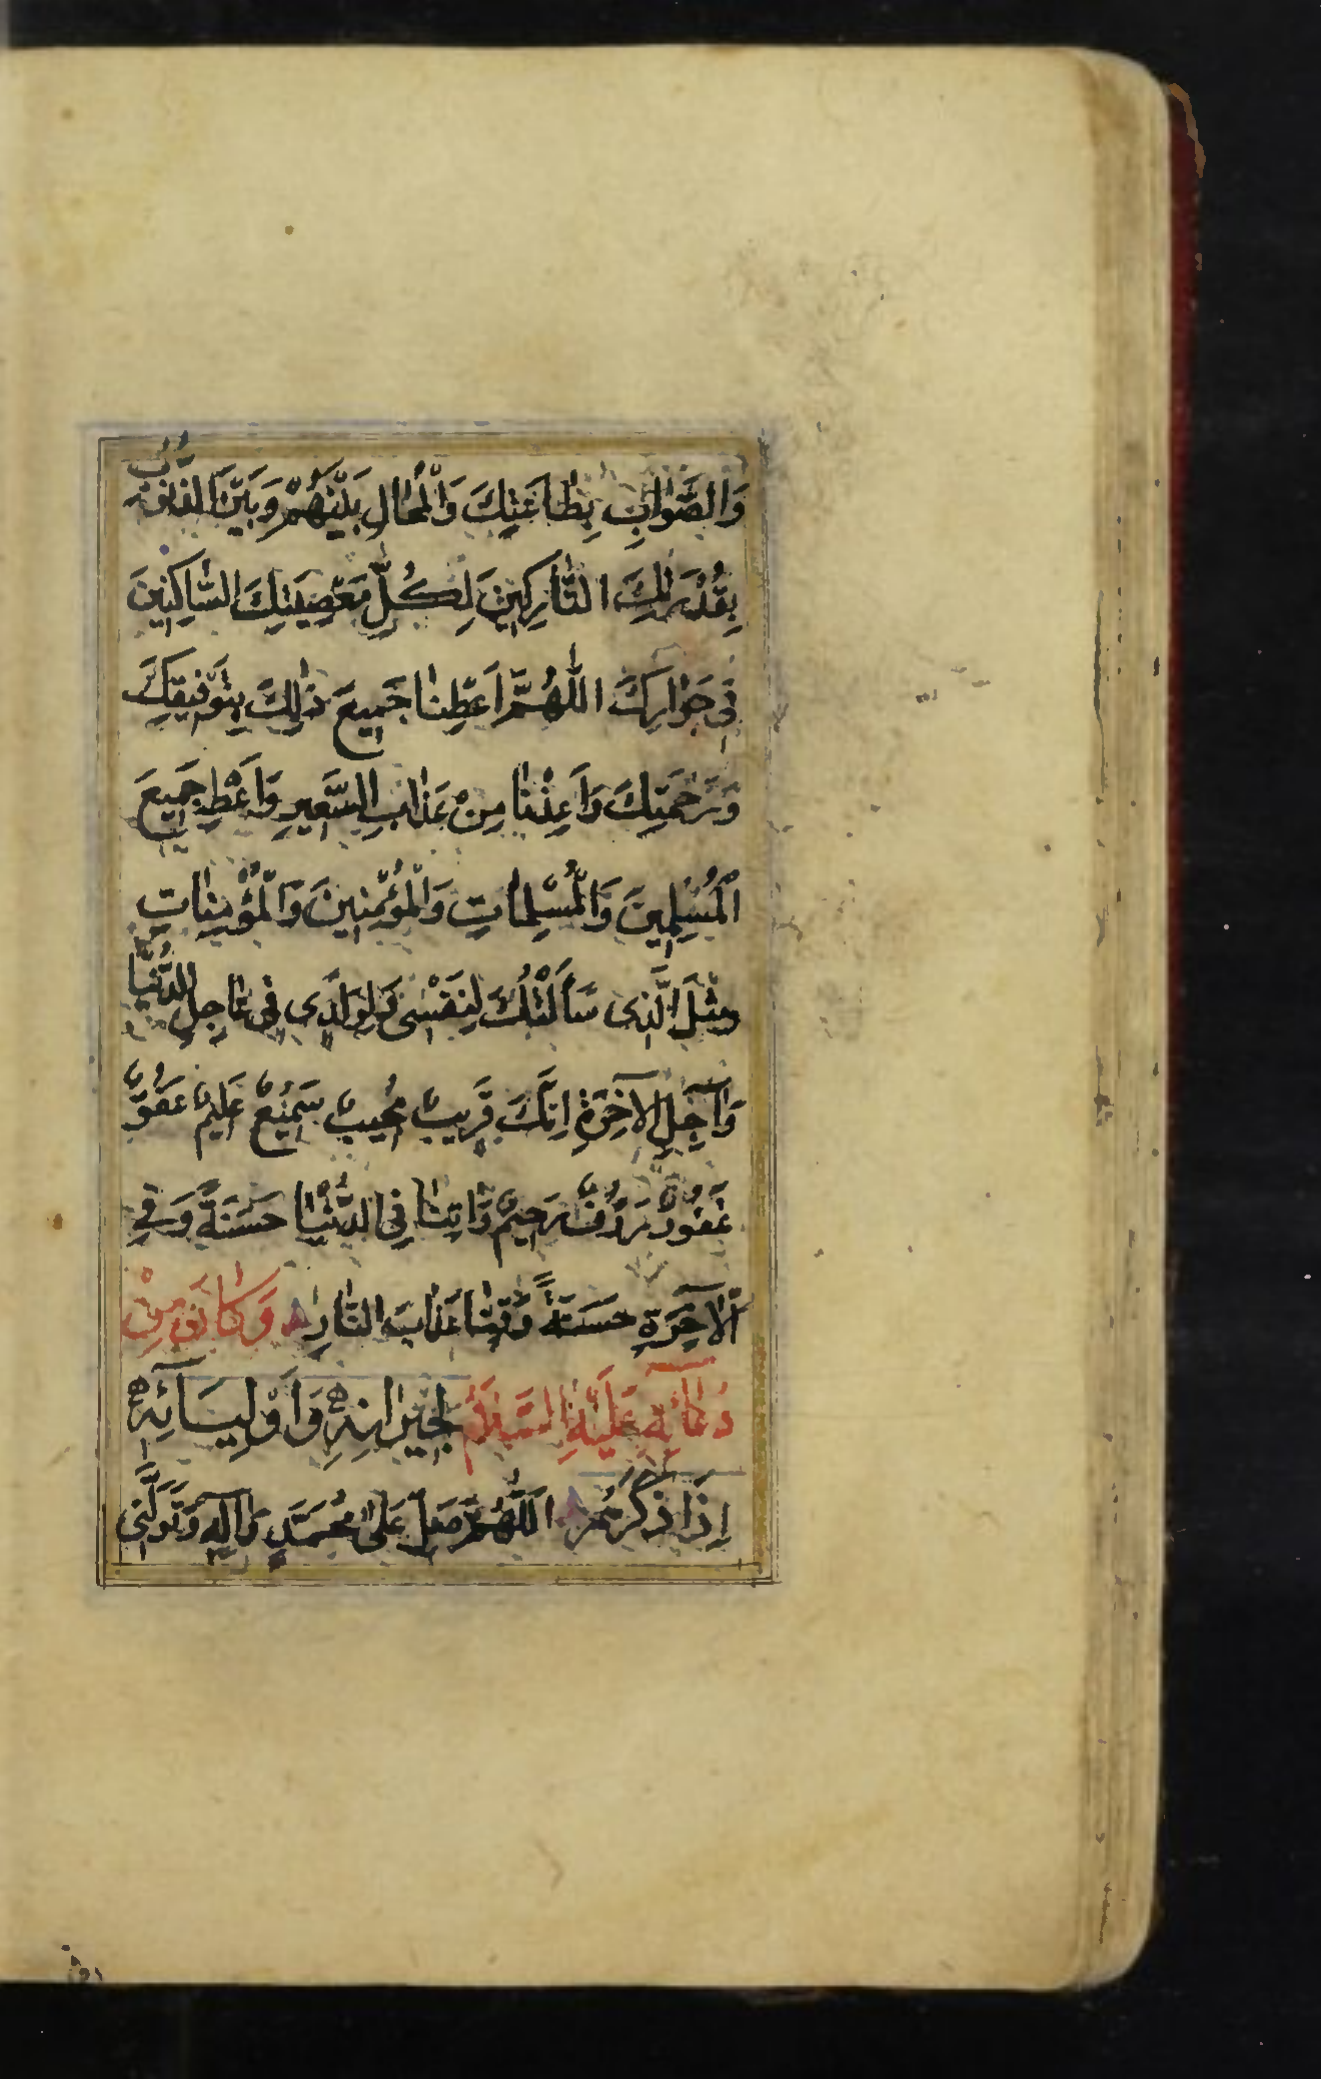 وَالصَّوٰابِ بِطٰاعَتِكَ وَالْمُحٰالِ بَيْنَهُمْ وَبَيْنَ الذُّنُوبِ
بِقُدْرَتِكَ التّٰارِكِينَ لِكُلِّ مَعْصِيَتِكَ السّٰاكِنِينَ
فِي جَوٰارِكَ اللّٰهُمَّ اَعْطِنٰا جَمِيعَ ذٰلِكَ بِتَوْفِيقِكَ
وَرَحْمَتِكَ وَاَعِذْنٰا مِنْ عَذٰابِ السَّعِيرِ وَاَعْطِ جَمِيعَ
الْمُسْلِمِينَ وَالْمُسْلِمٰاتِ وَالْمُؤْمِنِينَ وَالْمُؤْمِنٰاتِ
مِثْلَ الَّذِى سَأَلْتُكَ لِنَفْسِى وَلِوَلَدِى فِي عٰاجِلِ الدُّنْيٰا
وَآجِلِ الْآخِرَةِ اِنَّكَ قَرِيبٌ مُجِيبٌ سَمِيعٌ عَلِيمٌ عَفُوٌّ
غَفُورٌ رَؤُفٌ رَحِيمٌ وَاٰتِنٰا فِي الدُّنْيٰا حَسَنَةً وَفِي
الْآخِرَةِ حَسَنَةً وَقِنٰا عَذٰابَ النّٰارِ وَكٰانَ مِنْ
دُعٰائِهِ عَلَيْهِ السَّلَامُ لِجِيرٰانِهِ وَاَوْلِيَآئِهِ
اِذٰا ذَكَرَهُمْ اَللّٰهُمَّ صَلِّ عَلىٰ مُحَمَّدٍ وَآلِهِ وَتَوَلَّنِى